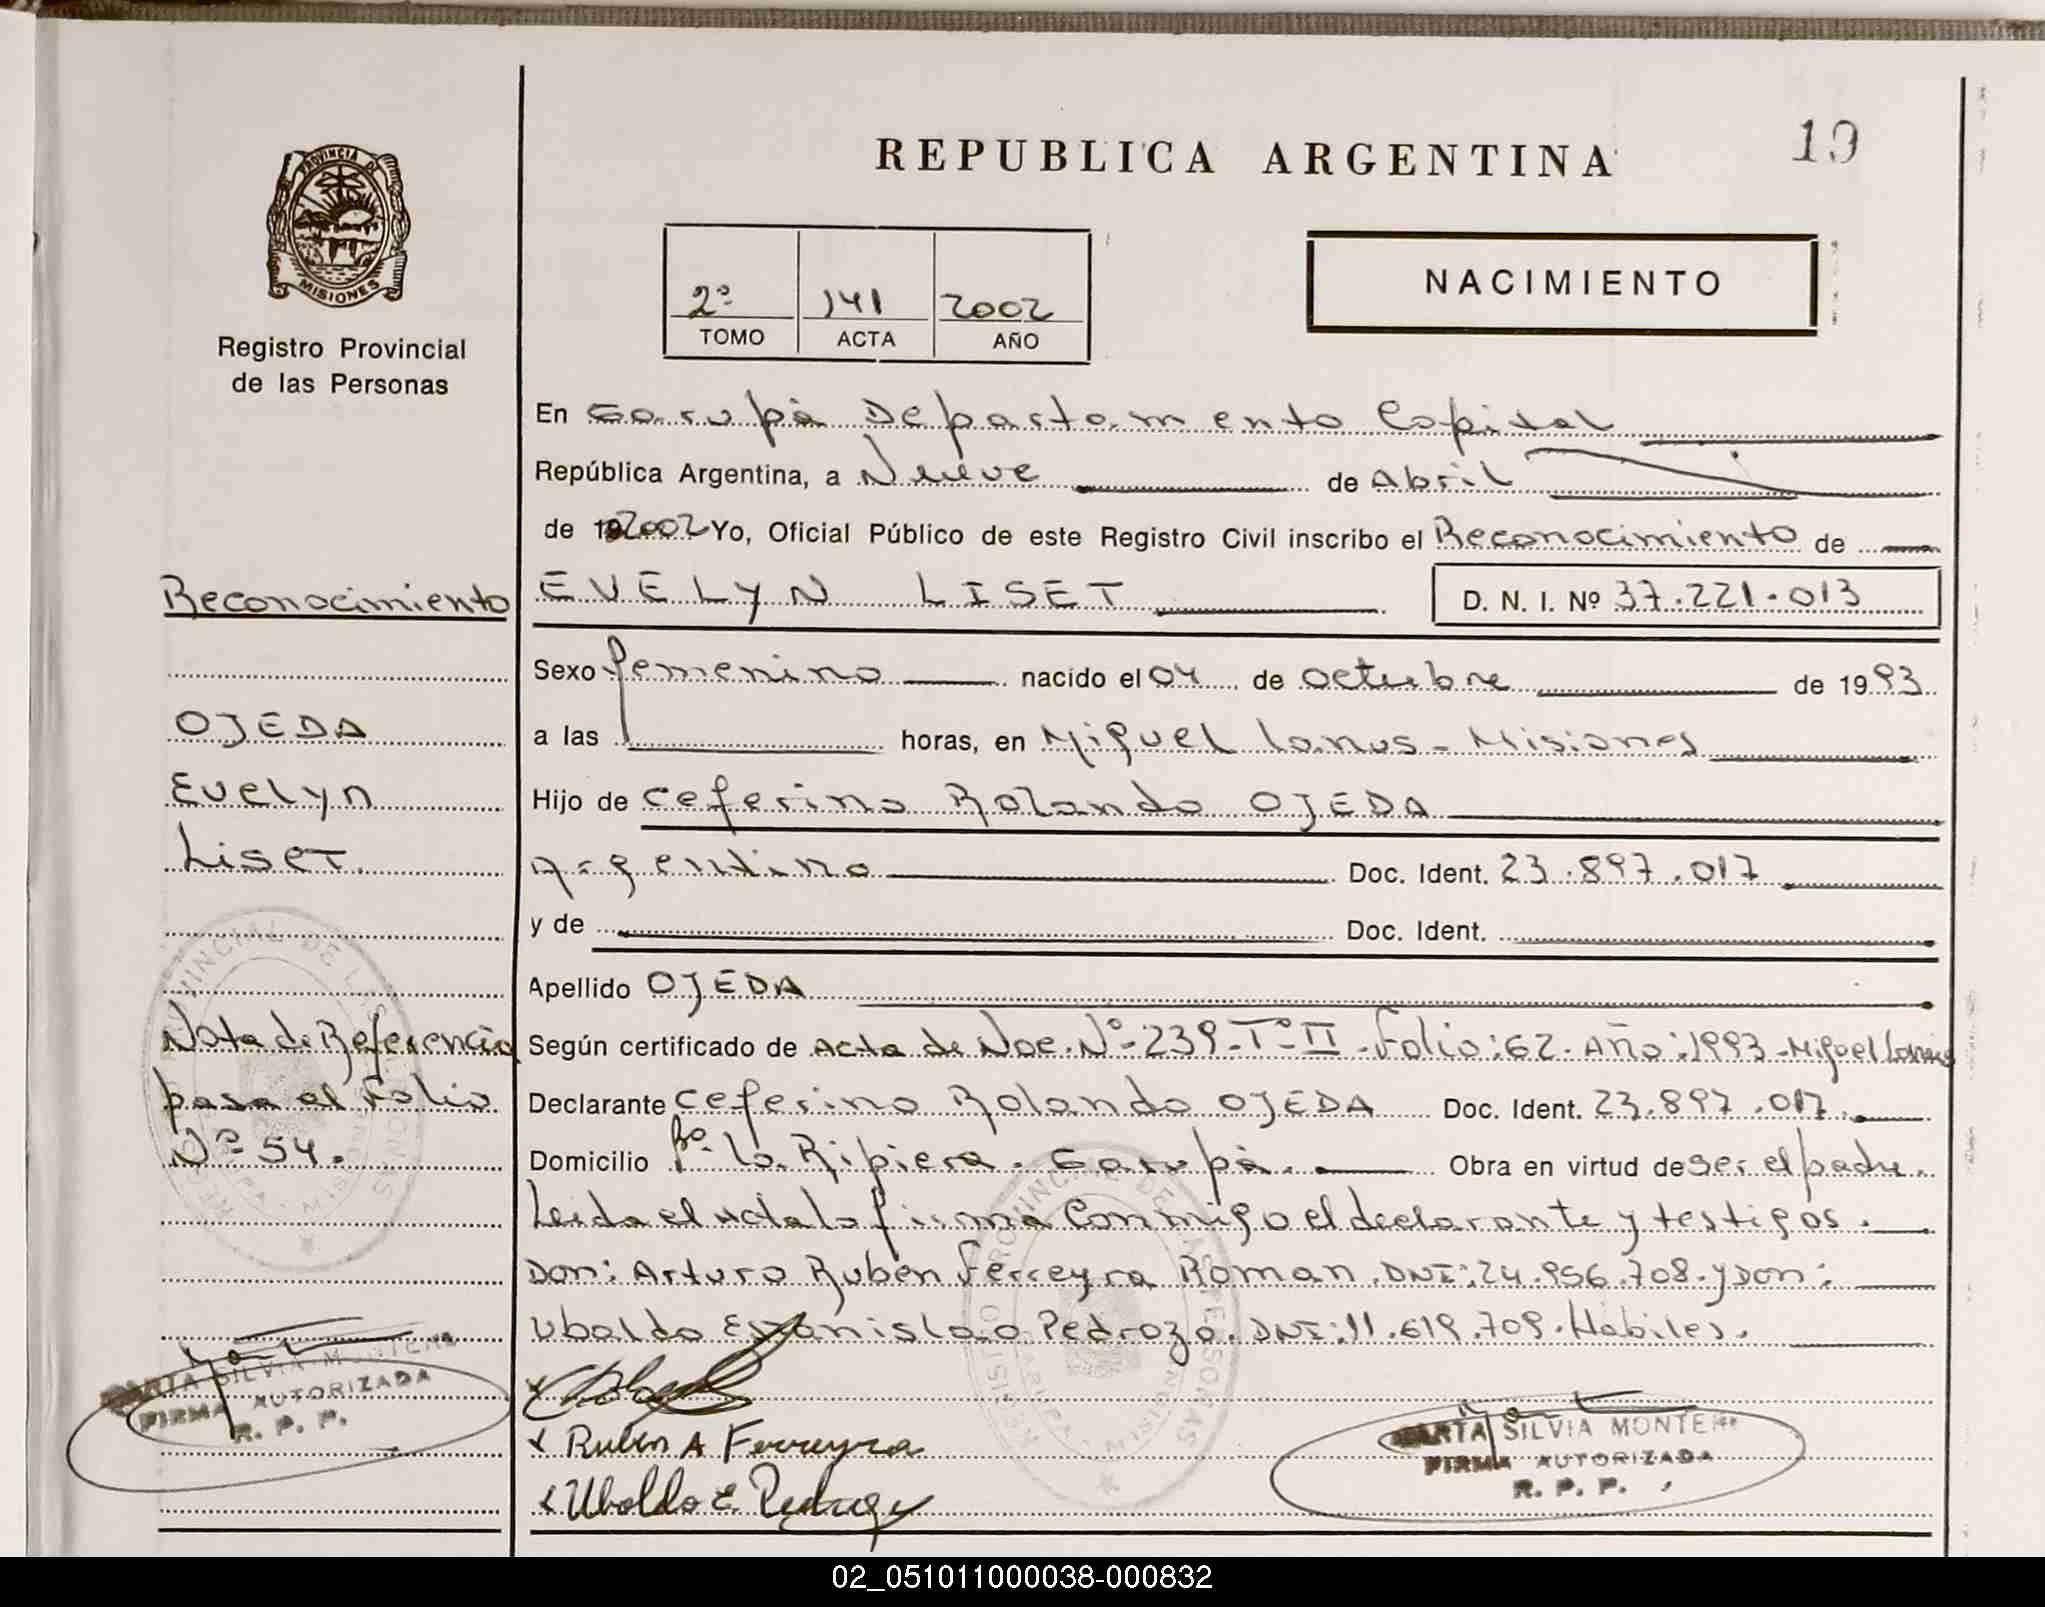 REPUBLICA ARGENTINA
19
PROVINCIA DE
MISIONES
Registro Provincial
de las Personas
2º 141 2002
TOMO ACTA AÑO
NACIMIENTO
En Garupá Departamento Capital
República Argentina, a Nueve de Abril
de 2002 Yo, Oficial Público de este Registro Civil inscribo el Reconocimiento de
EVELYN LISET D. N. I. Nº 37.221.013
Sexo femenino nacido el 04 de octubre de 1993
a las horas, en Miguel Lanus - Misiones
Hijo de Ceferino Rolando OJEDA
Argentino Doc. Ident. 23.897.017
y de Doc. Ident.
Apellido OJEDA
Según certificado de Acta de Nac. Nº 239-Tº II-Folio:62-Año:1993-Miguel Lanus
Declarante Ceferino Rolando OJEDA Doc. Ident. 23.897.017
Domicilio Bº. La Ripiera. Garupá. Obra en virtud de ser el padre.
Leida el acta la firma conmigo el declarante y testigos.
Don: Arturo Ruben Ferreyra Roman. DNI: 24.956.708. y Don:
Ubaldo Estanislao Pedrozo. DNI: 11.619.709. Hábiles.
x Ruben A Ferreyra
x Ubaldo E. Pedrozo
MARTA SILVIA MONTERO
FIRMA AUTORIZADA
R. P. P.
Reconocimiento
OJEDA
Evelyn
Liset.
Nota de Referencia
pasa al Folio
Nº 54.
MARTA SILVIA MONTERO
FIRMA AUTORIZADA
R. P. P.
02_051011000038-000832